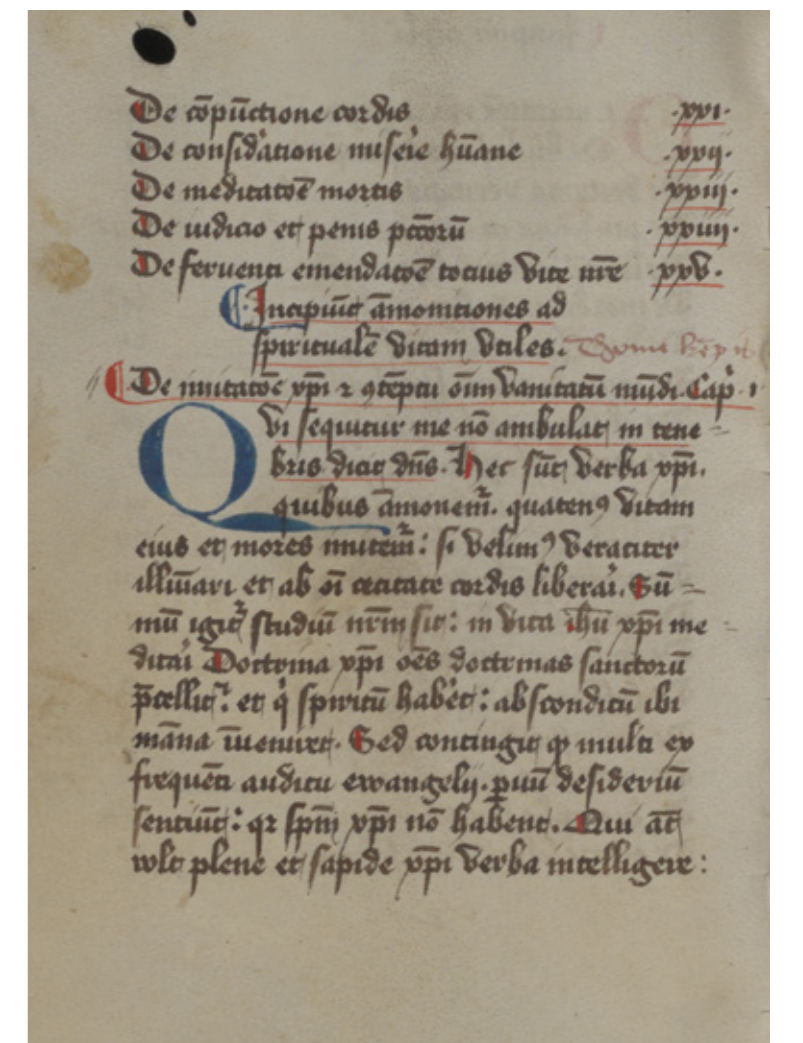 De co̅pu̅ctione cordis .xxi.
De consid'atione mise'ie hu̅ane .xxii.
De meditat͞oe̅ mortis .xxiii.
De iudicio et penis pc̅c̅oru̅ .xxiiii.
De feruenti emendat͞oe̅ tocius vite nr̅e .xxv.
Incipiu̅t a̅moniciones ad
spirituale̅ vitam vtiles. Thome ke̅pis
De imitat͞oe xp̅i ⁊ ꝯte̅ptu oi̅m vanitatu̅ mu̅di. Cap' 1
Qvi sequitur me no̅ ambulat in tene-
bris dicit dn̅s. Hec su̅t verba xp̅i.
quibus a̅monem̅r. quatenꝰ vitam
eius et mores imitem̅r: si velimꝰ veraciter
illu̅i̅ari et ab o̅i cecitate cordis liberai'. Su̅-
mu̅ igit̃ studiu̅ nr̅m sit: in vita ih̅u xp̅i me-
ditai' Doctrina xp̅i oe̅s doctrinas sanctoru̅
p̅cellit: et q' spiritu̅ habe'et: absconditu̅ ibi
ma̅na i̅ueniret. Sed contingit ꝙ multi ex
freque̅ti auditu ewangelij. ꝑuu̅ desideriu̅
sentiu̅t: qꝛ sp̅m xp̅i no̅ habent. Qui a̅t
wlt plene et sapide xp̅i verba intelligere: